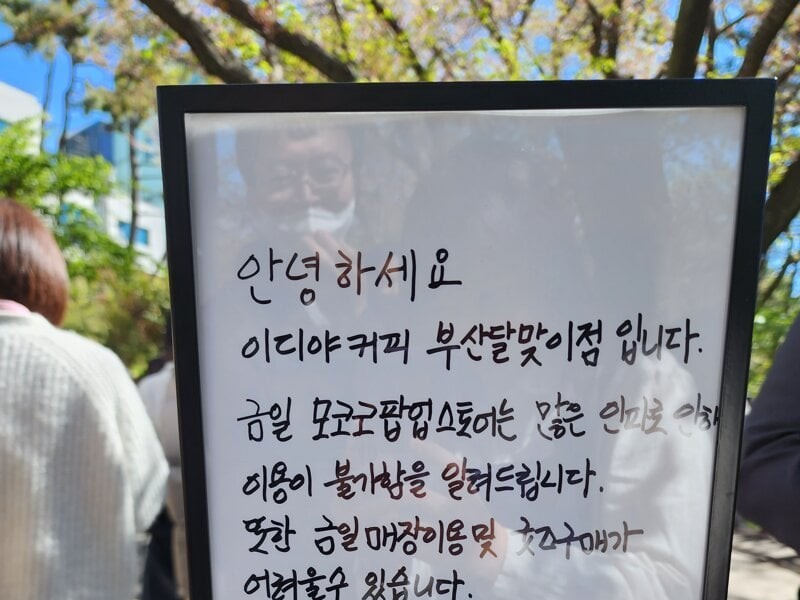 안녕하세요
이디야커피 부산달맞이점 입니다.
금일 모코코팝업스토어는 많은 인파로 인해
이용이 불가함을 알려드립니다.
또한 금일 매장이용및 굿즈구매가
어려울수 있습니다.